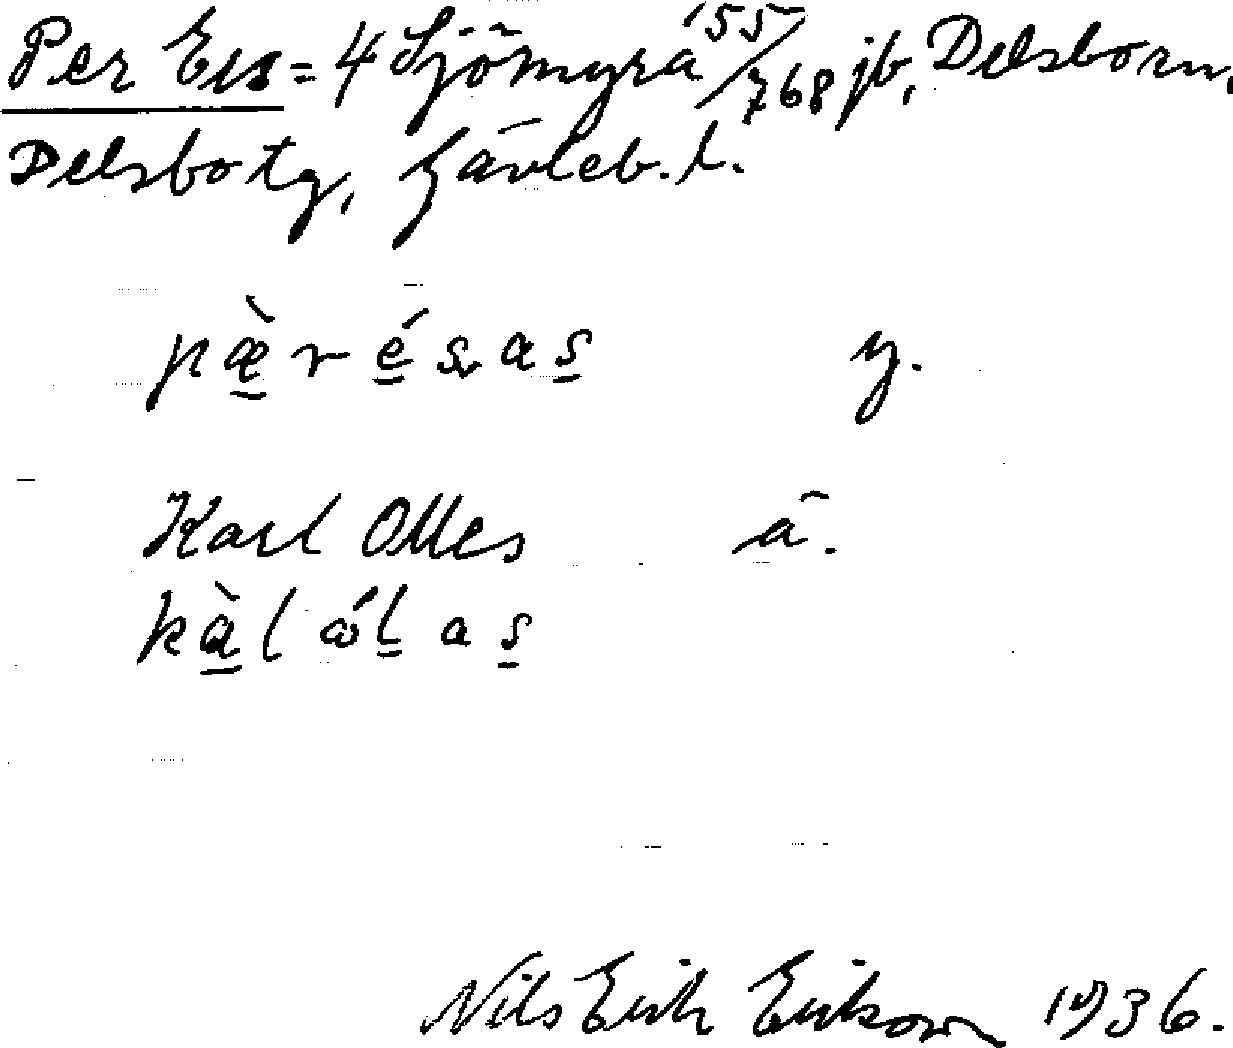 Per Ers = 4 Sjömyra 155/768 jb, Delsbo sn,
Delsbo tg, Gävleb. l.
pæ̀résas y.
Karl Olles ä.
kàlólas
Nils Erik Erikson 1936.